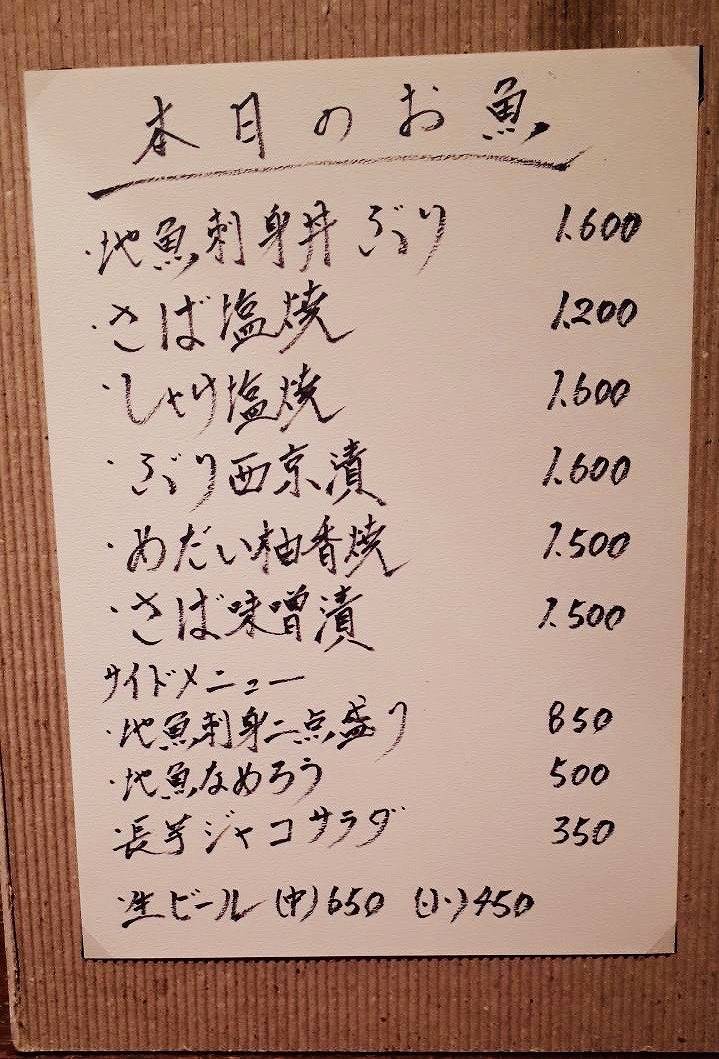 本日のお魚
・地魚刺身丼 ぶり 1.600
・さば塩焼 1.200
・しゃけ塩焼 1.600
・ぶり西京漬 1.600
・めだい柚香焼 1.500
・さば味噌漬 1.500
サイドメニュー
・地魚刺身二点盛り 850
・地魚なめろう 500
・長芋ジャコサラダ 350
・生ビール (中)650 (小)450